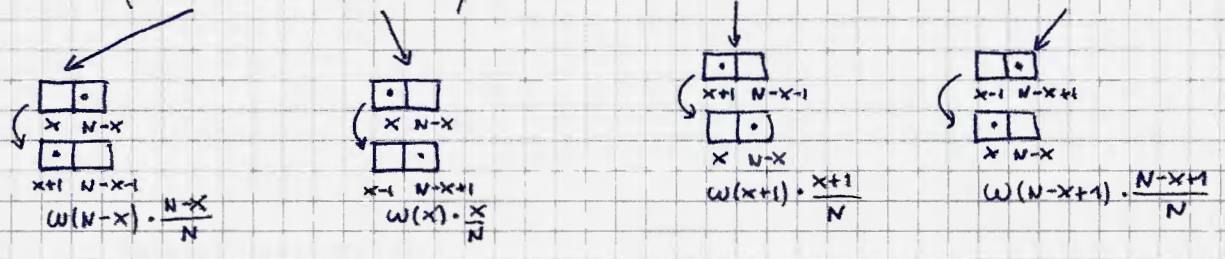 x N-x
x+1 N-x-1
ω(N-x) · \frac{N-x}{N}
x N-x
x-1 N-x+1
ω(x) · \frac{x}{N}
x+1 N-x-1
x N-x
ω(x+1) · \frac{x+1}{N}
x-1 N-x+1
x N-x
ω(N-x+1) · \frac{N-x+1}{N}